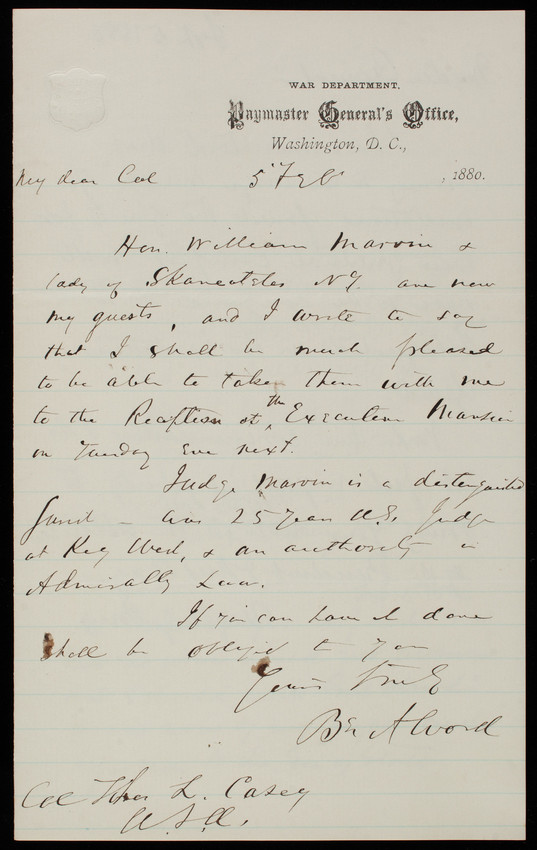 WAR DEPARTMENT,
Paymaster General's Office,
Washington, D. C.,
My dear Col 5" Feb , 1880.
Hon. William Marvin &
lady of Skaneateles NY. are now
my guests, and I write to say
that I shall be much pleased
to be able to take them with me
to the Reception at the Executive Mansion
on Tuesday Eve next.
Judge Marvin is a distinguished
Jurist – was 25 years U.S. Judge
at Key West, & an authority in
Admiralty Law.
If you can have it done
shall be obliged to you
Yours truly
Bn Alvord
Col Thos L. Casey
U.S.A.